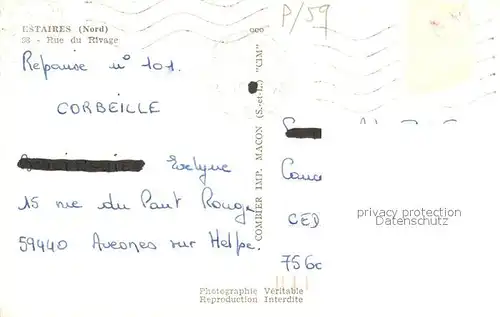 ESTAIRES (Nord)
98 - Rue du Rivage
P/59
Reponse n° 101.
CORBEILLE
Evelyne
15 rue du Pont Rouge
59440 Avesnes sur Helpe.
COMBIER IMP. MACON (S.-et-L.) "CIM"
CED
756
privacy protection
Datenschutz
Photographie Véritable
Reproduction Interdite